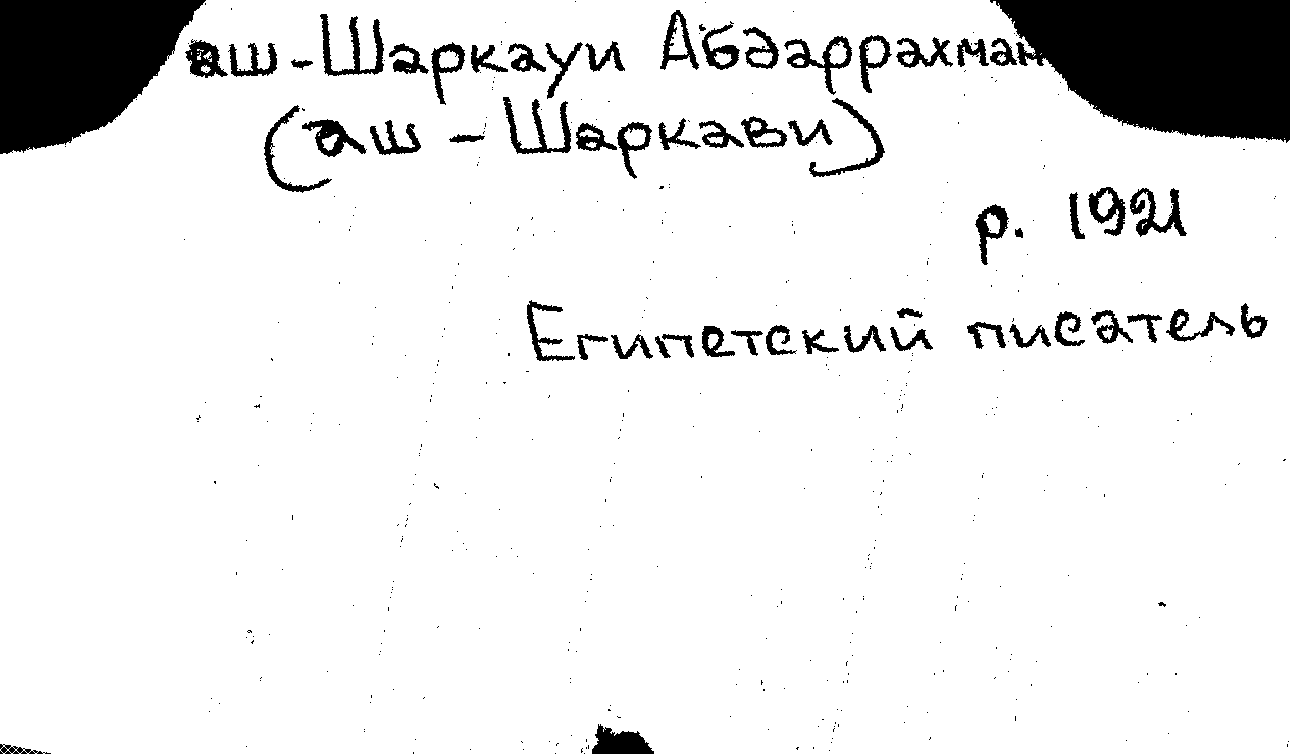 аш-Шаркауи Абдаррахман
(аш-Шаркави)
р. 1921
Египетский писатель